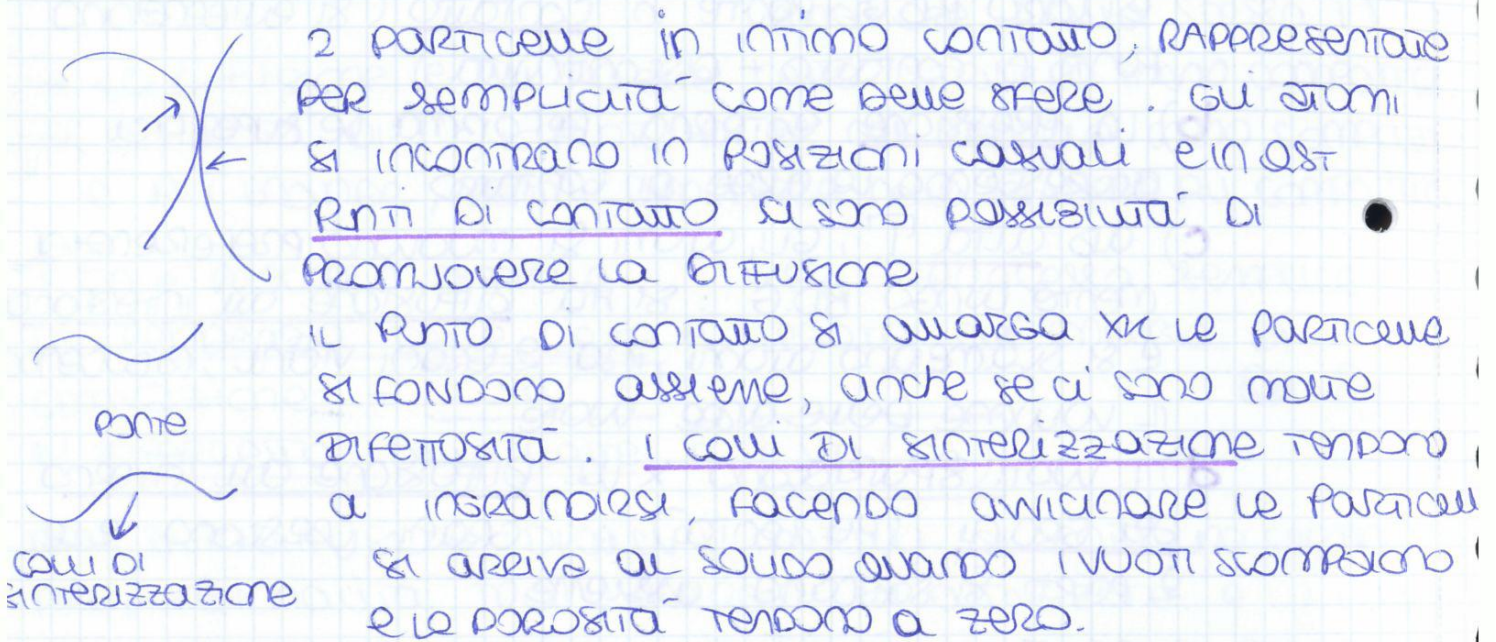 2 particelle in intimo contatto, rappresentate
per semplicità come delle sfere. Gli atomi
si incontrano in posizioni casuali e in qst
punti di contatto ci sono possibilità di
promuovere la diffusione
il punto di contatto si allarga xk le particelle
si fondono assieme, anche se ci sono molte
ponte
difettosità. I colli di sinterizzazione tendono
a ingrandirsi, facendo avvicinare le particell
colli di
sinterizzazione
si arriva al solido quando i vuoti scompaiono
e le porosità tendono a zero.